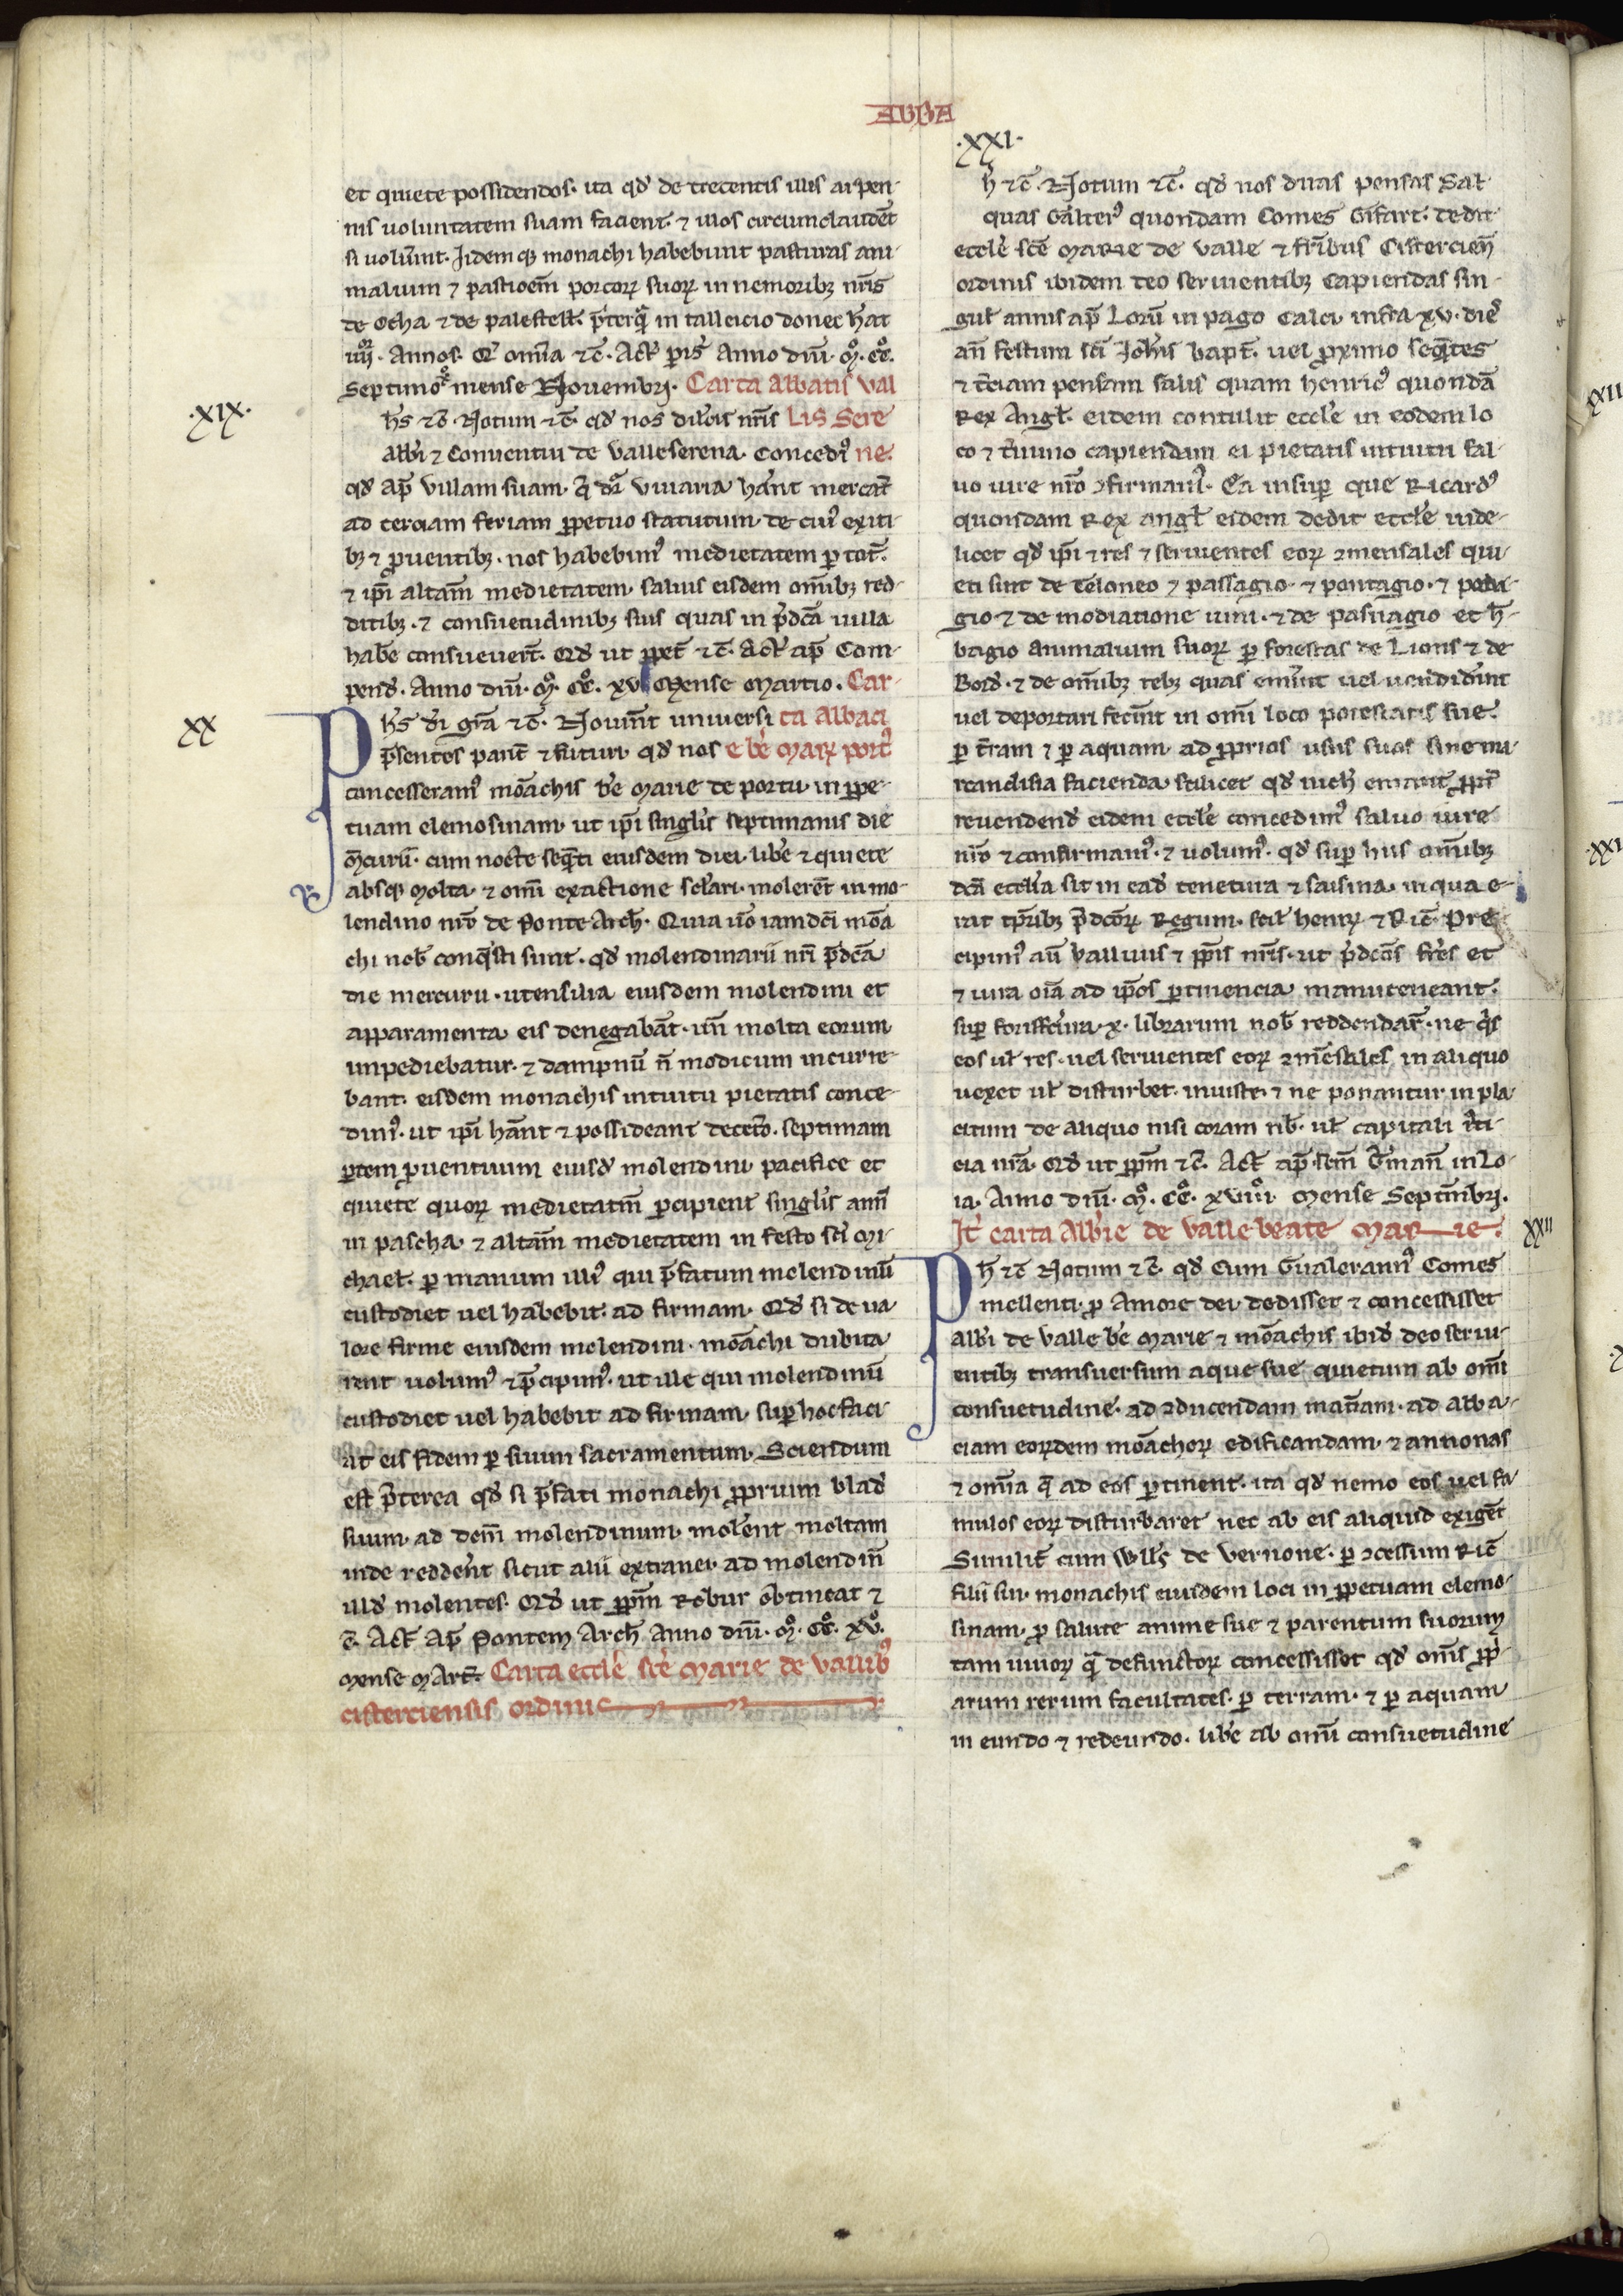 ABBA
et quiete possidendos. ita qđ de trecentis illis arpen-
nis uoluntatem suam facient. ⁊ illos circumclaudēt
si uolu̅int. Iidem qꝫ monachi habebunt pasturas ani-
malium ⁊ pastioēm porcoꝝ suoꝝ in nemoribꝫ nr̅is
de Otha ⁊ de palestell. p̅terq̅ in talleicio donec h̅at
iiii. Annos. Qđ om̅ia ⁊c̅. Act̅ pis̅ Anno dn̅i. m̊. cc̊.
septimo mense Nouembri. Carta Abbatis Val
.XIX.
h̅s ⁊c̅. Notum ⁊c̅. qđ nos dil̅cis nr̅is lis Sere
abb̅i ⁊ Conuentui de Valleserena. Concedim᷒ ne.
qđ ap̅ villam suam. q̅ dr̅ Viuaria hānt mercat̅
ad terciam feriam ꝑpetuo statutum. de cui᷒ exiti-
bꝫ ⁊ ꝓuentibꝫ. nos habebim᷒ medietatem ꝑ tot̅.
⁊ ip̅i altam̅ medietatem. saluis eisdem om̅ibꝫ red-
ditibꝫ. ⁊ consuetudinibꝫ suis quas in p̅dc̅a uilla
hab̅e consueuer̅t. Qđ ut ꝑpet̅ ⁊c̅. Act̅ ap̅ Com-
pend̅. Anno dn̅i. m̊. cc̊. xv Mense Martio. Car-
XX
Ph̅s d̅i gr̅a ⁊c̅. Nouin̅t uniuersi ta Abbaci
p̅sentes parit̅ ⁊ futuri. qđ nos e be̅ marꝫ port᷒
concesseram᷒ mōachis b̅e Marie de portu. in ꝑpe-
tuam elemosinam. ut ip̅i singl̅is septimanis die
m̅curii. cum nocte seq̅nti eiusdem diei. lib̅e ⁊ quiete
absqꝫ molta ⁊ om̅i exactione sc̅lari. moler̅et in mo-
lendino nr̅o de Ponte Arch̅. Quia u̅o iamdc̅i mōa
chi nob̅ conq̅sti sunt. qđ molendinarii nr̅i p̅dc̅a
die mercurii. utensilia eiusdem molendini et
apparamenta eis denegabāt. un̅ molta eorum
impediebatur. ⁊ dampnū n̅ modicum incurre-
bant. eisdem monachis intuitu pietatis conce-
dim᷒. ut ip̅i hānt ⁊ possideant decet̅o. septimam
ꝑtem ꝓuentuum eiusđ molendini pacifice et
quiete quoꝝ medietatm̅ ꝑcipient singl̅is ann̅
in pascha. ⁊ altam̅ medietatem in festo sc̅i Mi-
chael̅. ꝑ manum illi᷒ qui p̅fatum molendinū
custodiet uel habebit. ad firmam. Qđ si de ua-
lore firme eiusdem molendini. mōachi dubita
rent uolum᷒ ⁊ p̅cipim᷒. ut ille qui molendinū
custodiet uel habebit ad firmam. sup̅ hoc faci-
at eis fidem ꝑ suum sacramentum. Sciendum
est p̅terea qđ si p̅fati monachi ꝓprium blad̅
suum. ad dem̅ molendinum. moler̅ent moltam
inde redder̅ent sicut alii extranei. ad molendin̅
illđ molentes. Qđ ut ꝑpm̅ Robur obtineat ⁊
c̅. Act̅ Ap̅ Pontem Arch̅ Anno dn̅i. m̊. cc̊. xv̊.
Mense Mart̅. Carta eccl̅e sc̅e Marie de Vallib᷒
cisterciensis ordinis
.XXI.
h̅ ⁊c̅. Notum ⁊c̅. qđ nos duas pensas Sal̅
quas Galter᷒ quondam Comes Gifart. dedit
eccl̅e sc̅e Marie de Valle ⁊ fr̅ibus Cistercien̅
ordinis ibidem deo seruientibꝫ Capiendas sin-
gul̅ annis ap̅ Lorū in pago Calci. infra xv. dies
an̅ festum sc̅i Joh̅is bapt̅. uel ꝓximo seq̅ntes
⁊ t̅ciam pensam salis quam henric᷒ quondā
Rex Angl̅. eidem contulit eccl̅e in eodem lo
co ⁊ t̅mino capiendam ei pietatis intuitu sal-
uo iure nr̅o ꝯfirmam᷒. Ea insup̅ que Ricard᷒
quondam Rex angl̅ eidem dedit eccl̅e uide-
licet qđ ip̅i ⁊ res ⁊ seruientes eoꝝ ꝯmensales qui-
eti sint de teloneo ⁊ passagio. ⁊ pontagio. ⁊ peda-
gio. ⁊ de modiatione uini. ⁊ de pasnagio et h̅-
bagio animalium suoꝝ ꝑ forestas de Lions ⁊ de
Bord̅. ⁊ de om̅ibꝫ rebꝫ quas emer̅int uel uendider̅int
uel deportari fecer̅int in om̅i loco potestatis sue.
ꝑ t̅ram ⁊ ꝑ aquam. ad ꝓprios usus suos sine m̅-
candisia facienda. scilicet qđ nich̅ emant ꝓpt̅
reuendend̅. eidem eccl̅e concedim᷒ saluo iure
nr̅o ⁊ confirmam᷒. ⁊ uolum᷒. qđ sup̅ hiis om̅ibꝫ
dc̅a eccl̅ia sit in eađ tenetura ⁊ saisina. in qua e-
rat tp̅ribꝫ p̅dc̅oꝝ Regum. scil̅ henrꝫ ⁊ Ric̅. Pre
cipim᷒ au̅ balliuis ⁊ p̅pis nr̅is. ut p̅dc̅os fr̅es et
⁊ iura oīa ad ip̅os ꝑtinencia manuteneant.
sup̅ forisfc̅ura. x. librarum nob̅ reddendar̅. ne q̅s
eos ul̅ res. uel seruientes eoꝝ ꝯmēsales in aliquo
uexet ul̅ disturbet. iniuste. ⁊ ne ponantur in pla-
citum de aliquo nisi coram nb̅. ul̅ capitali iusti-
cia nr̅a. Qđ ut ꝑpm̅ ⁊c̅. Act̅ ap̅ scm̅ G̅man̅ in Lo-
ia. Anno dn̅i. m̊. cc̊. xviiii̊. Mense Septembri.
It̅ carta Abb̅ie de Valle beate Marie.
XXII
Ph̅ ⁊c̅ Notum ⁊c̅. qđ Cum Gualerann᷒ Comes
mellenti. ꝓ Amore dei. dedisset ⁊ concessisset
abb̅i de Valle b̅e Marie ⁊ mōachis ibiđ deo serui-
entibꝫ transuersum aque sue quietum ab om̅i
consuetudine. ad ꝯducendam mat̅iam. ad abba-
ciam eoꝝdem mōachoꝝ edificandam. ⁊ annonas
⁊ om̅ia q̅ ad eos ꝑtinent. ita qđ nemo eos uel fa-
mulos eoꝝ disturbaret nec ab eis aliquid exiget̅
Similit̅ cum Will̅s de Vernone. ꝑ ꝯcessum Ric̅
filii sui. monachis eiusdem loci in ꝑpetuam elemo-
sinam. ꝓ salute anime sue ⁊ parentum suorum
tam uiuoꝝ q̅ defunctoꝝ concessisset qđ om̅s ꝓp̅-
arum rerum facultates. ꝑ terram. ⁊ ꝑ aquam
in eundo ⁊ redeundo. lib̅e ab om̅i consuetudine